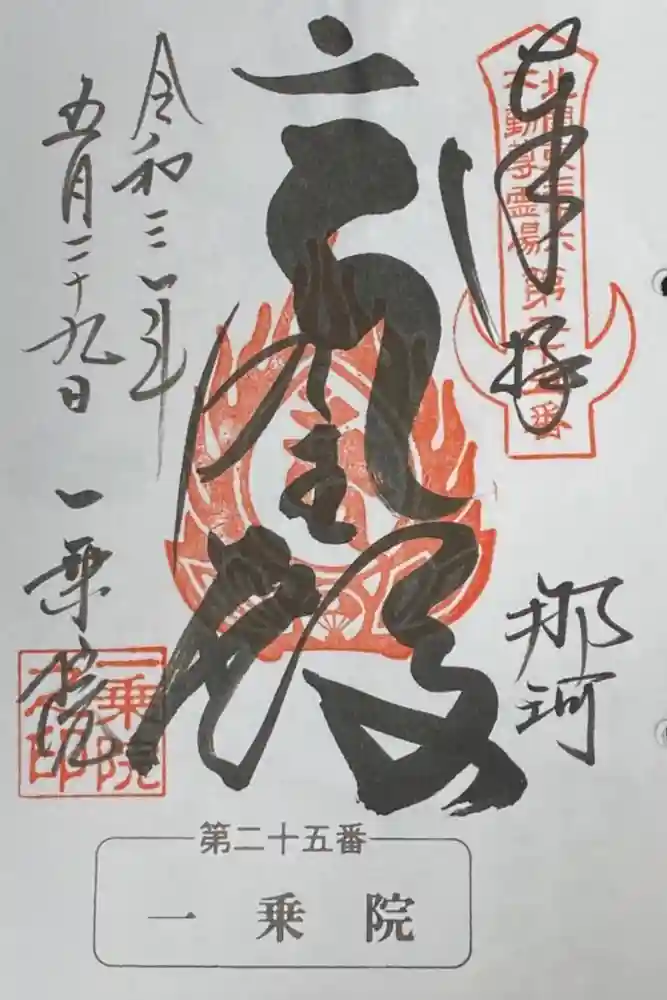 奉拝
北関東三十六
不動尊霊場第二十五番
那珂
令和三年
五月二十九日
一乗院
一乗院
印
第二十五番
一乗院